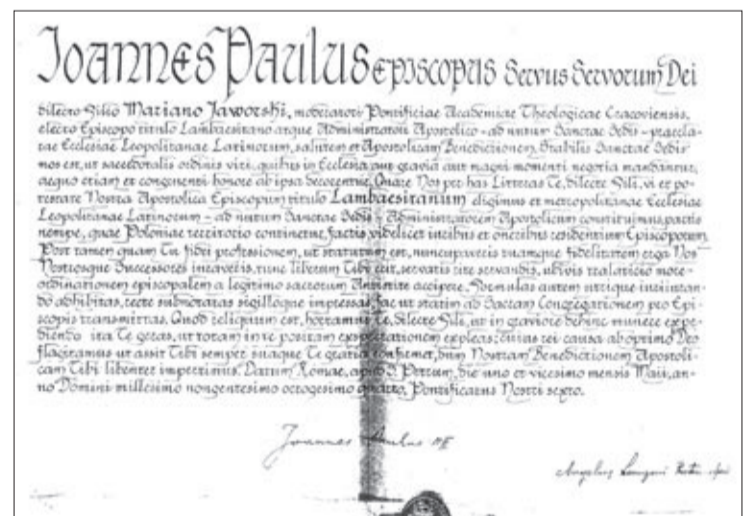 JOANNES PAULUS EPISCOPUS Servus Servorum Dei
dilecto Filio Mariano Jaworski, moderatori Pontificiae Academiae Theologicae Cracoviensis,
electo Episcopo titulo Lambaesitano atque Administratori Apostolico - ad nutum Sanctae Sedis - praecla-
rae Ecclesiae Leopolitanae Latinorum, salutem et Apostolicam Benedictionem. Stabilis Sanctae Sedis
mos est, ut sacerdotalis ordinis viri, quibus in Ecclesia aut gravia aut magni momenti negotia mandantur,
aequo etiam et congruenti honore ab ipsa decorentur. Quare Nos per has Litteras Te, dilecte Fili, vi et po-
testate Nostra Apostolica Episcopum titulo Lambaesitanum eligimus et metropolitanae Ecclesiae
Leopolitanae Latinorum - ad nutum Sanctae Sedis - Administratorem Apostolicum constituimus, partis
nempe, quae Poloniae territorio continetur, factis videlicet iuribus et oneribus residentium Episcoporum
Post tamen quam Tu fidei professionem, ut statutum est, nuncupaveris tuamque fidelitatem erga Nos
Nostrosque Successores iuraveris, tunc liberum Tibi erit, servatis rite servandis, ubivis tralaticio more
ordinationem episcopalem a legitimo sacrorum Antistite accipere. Formulas autem utrique iuriuran-
do adhibitas, recte subnotatas sigilloque impressas, fac ut statim ad Sacram Congregationem pro Epi-
scopis transmittas. Quod reliquum est, hortamur Te, dilecte Fili, ut in graviore dehinc munere expe-
diendo ita Te geras, ut totam in te positam expectationem expleas; cuius rei causa ab optimo Deo
flagitamus ut assit Tibi semper suaque Te gratia confirmet, dum Nostram Benedictionem Apostoli-
cam Tibi libenter impertimus. Datum Romae, apud S. Petrum, die uno et vicesimo mensis Maii, an-
no Domini millesimo nongentesimo octogesimo quarto, Pontificatus Nostri sexto.
Joannes Paulus II
Angelus